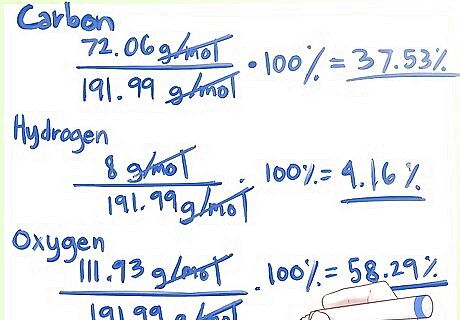 Carbon
72.06 g/mol
191.99 g/mol
· 100% = 37.53%
Hydrogen
8 g/mol
191.99 g/mol
· 100% = 4.16%
Oxygen
111.93 g/mol
191.99 g/mol
· 100% = 58.29%